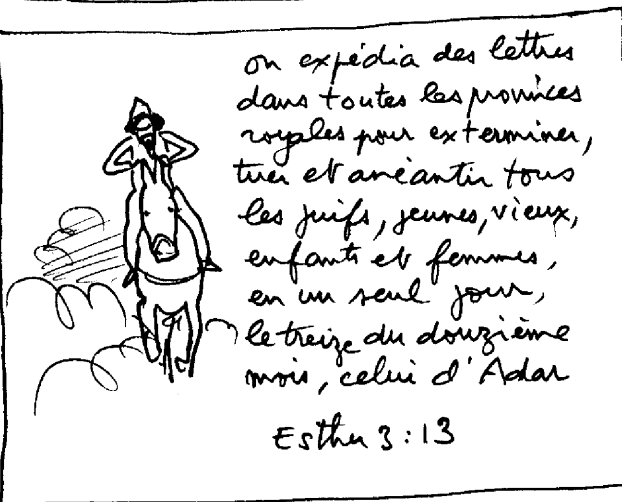 on expédia des lettres
dans toutes les provinces
royales pour exterminer,
tuer et anéantir tous
les juifs, jeunes, vieux,
enfants et femmes,
en un seul jour,
le treize du douzième
mois, celui d'Adar
Esther 3:13